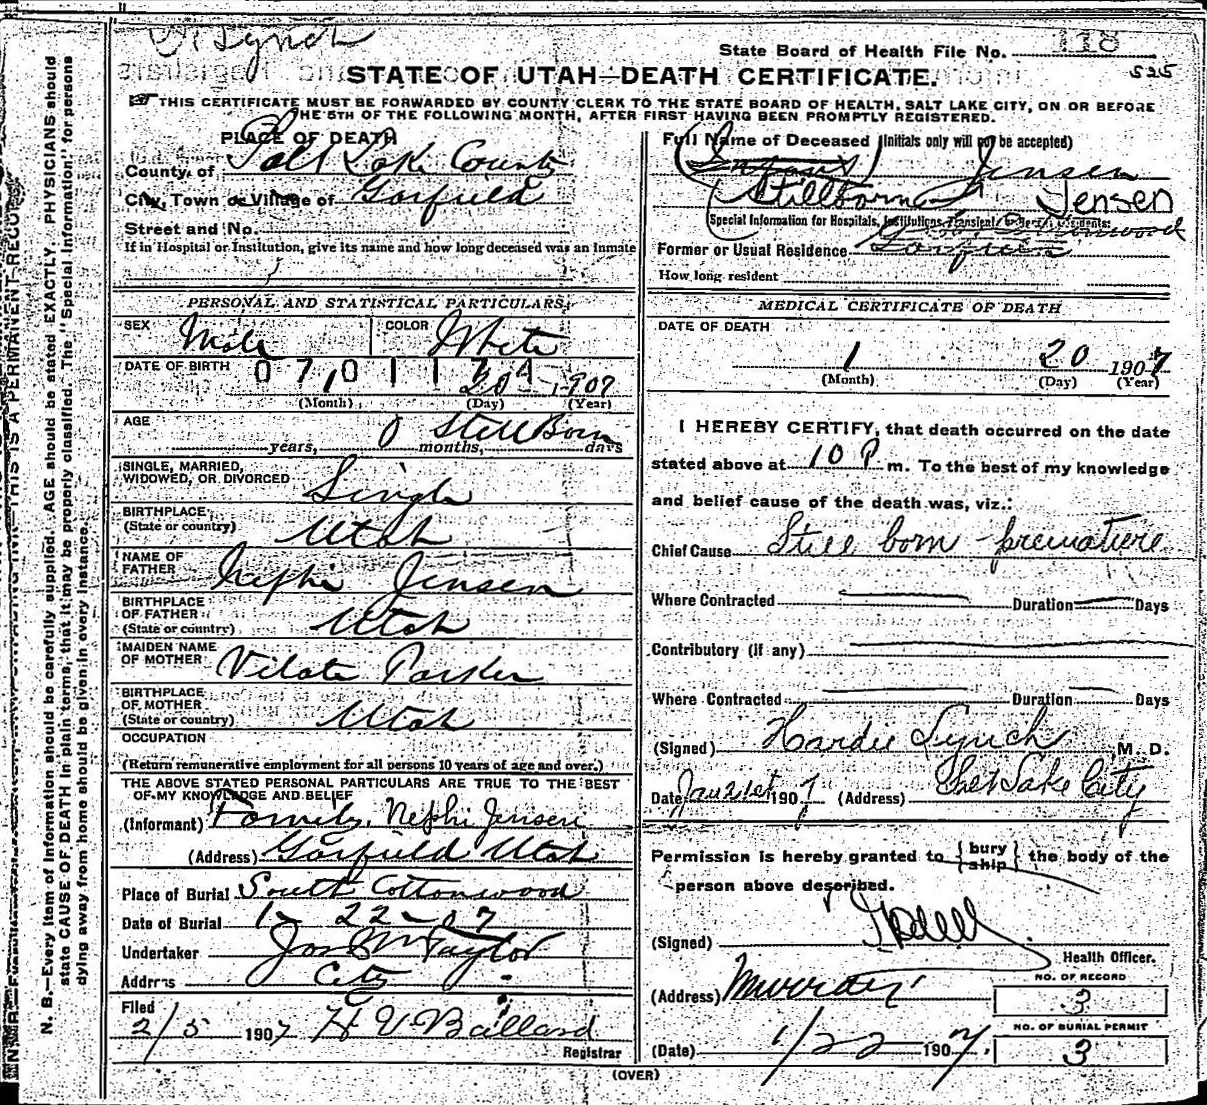 H Lynch
State Board of Health File No. 118
525
STATE OF UTAH—DEATH CERTIFICATE.
THIS CERTIFICATE MUST BE FORWARDED BY COUNTY CLERK TO THE STATE BOARD OF HEALTH, SALT LAKE CITY, ON OR BEFORE
THE 5TH OF THE FOLLOWING MONTH, AFTER FIRST HAVING BEEN PROMPTLY REGISTERED.
PLACE OF DEATH
County of Salt Lake County
City, Town or Village of Garfield
Street and No.
If in Hospital or Institution, give its name and how long deceased was an inmate
Full Name of Deceased (Initials only will not be accepted)
(Infant) Jensen
(Stillborn) Jensen
Special Information for Hospitals, Institutions, Transient or Recent Residents:
Former or Usual Residence Garfield
How long resident
PERSONAL AND STATISTICAL PARTICULARS
SEX Male COLOR White
DATE OF BIRTH 1 20 1907
0701174
(Month) (Day) (Year)
AGE 0 Still Born
years, months, days
SINGLE, MARRIED,
WIDOWED, OR DIVORCED Single
BIRTHPLACE
(State or country) Utah
NAME OF
FATHER Nephi Jensen
BIRTHPLACE
OF FATHER
(State or country) Utah
MAIDEN NAME
OF MOTHER Vilate Parker
BIRTHPLACE
OF MOTHER
(State or country) Utah
OCCUPATION
(Return remunerative employment for all persons 10 years of age and over.)
THE ABOVE STATED PERSONAL PARTICULARS ARE TRUE TO THE BEST
OF MY KNOWLEDGE AND BELIEF
(Informant) Family. Nephi Jensen
(Address) Garfield Utah
Place of Burial South Cottonwood
Date of Burial 1- 22 - 07
Undertaker Jos Wm Taylor
Address City
Filed
2/5 1907 H V Ballard
Registrar
MEDICAL CERTIFICATE OF DEATH
DATE OF DEATH
1 20 1907
(Month) (Day) (Year)
I HEREBY CERTIFY, that death occurred on the date
stated above at 10 P m. To the best of my knowledge
and belief cause of the death was, viz.:
Chief Cause Still born - premature
Where Contracted Duration Days
Contributory (if any)
Where Contracted Duration Days
(Signed) Hardie Lynch M. D.
Date Jan 21st 1907 (Address) Salt Lake City
Permission is hereby granted to {bury ship} the body of the
person above described.
(Signed)
Health Officer.
(Address) Murray
(Date) 1/22 1907.
NO. OF RECORD
3
NO. OF BURIAL PERMIT
3
(OVER)
N. B.—Every item of information should be carefully supplied. AGE should be stated EXACTLY. PHYSICIANS should
state CAUSE OF DEATH in plain terms, that it may be properly classified. The "Special Information" for persons
dying away from home should be given in every instance.
THIS IS A PERMANENT RECORD